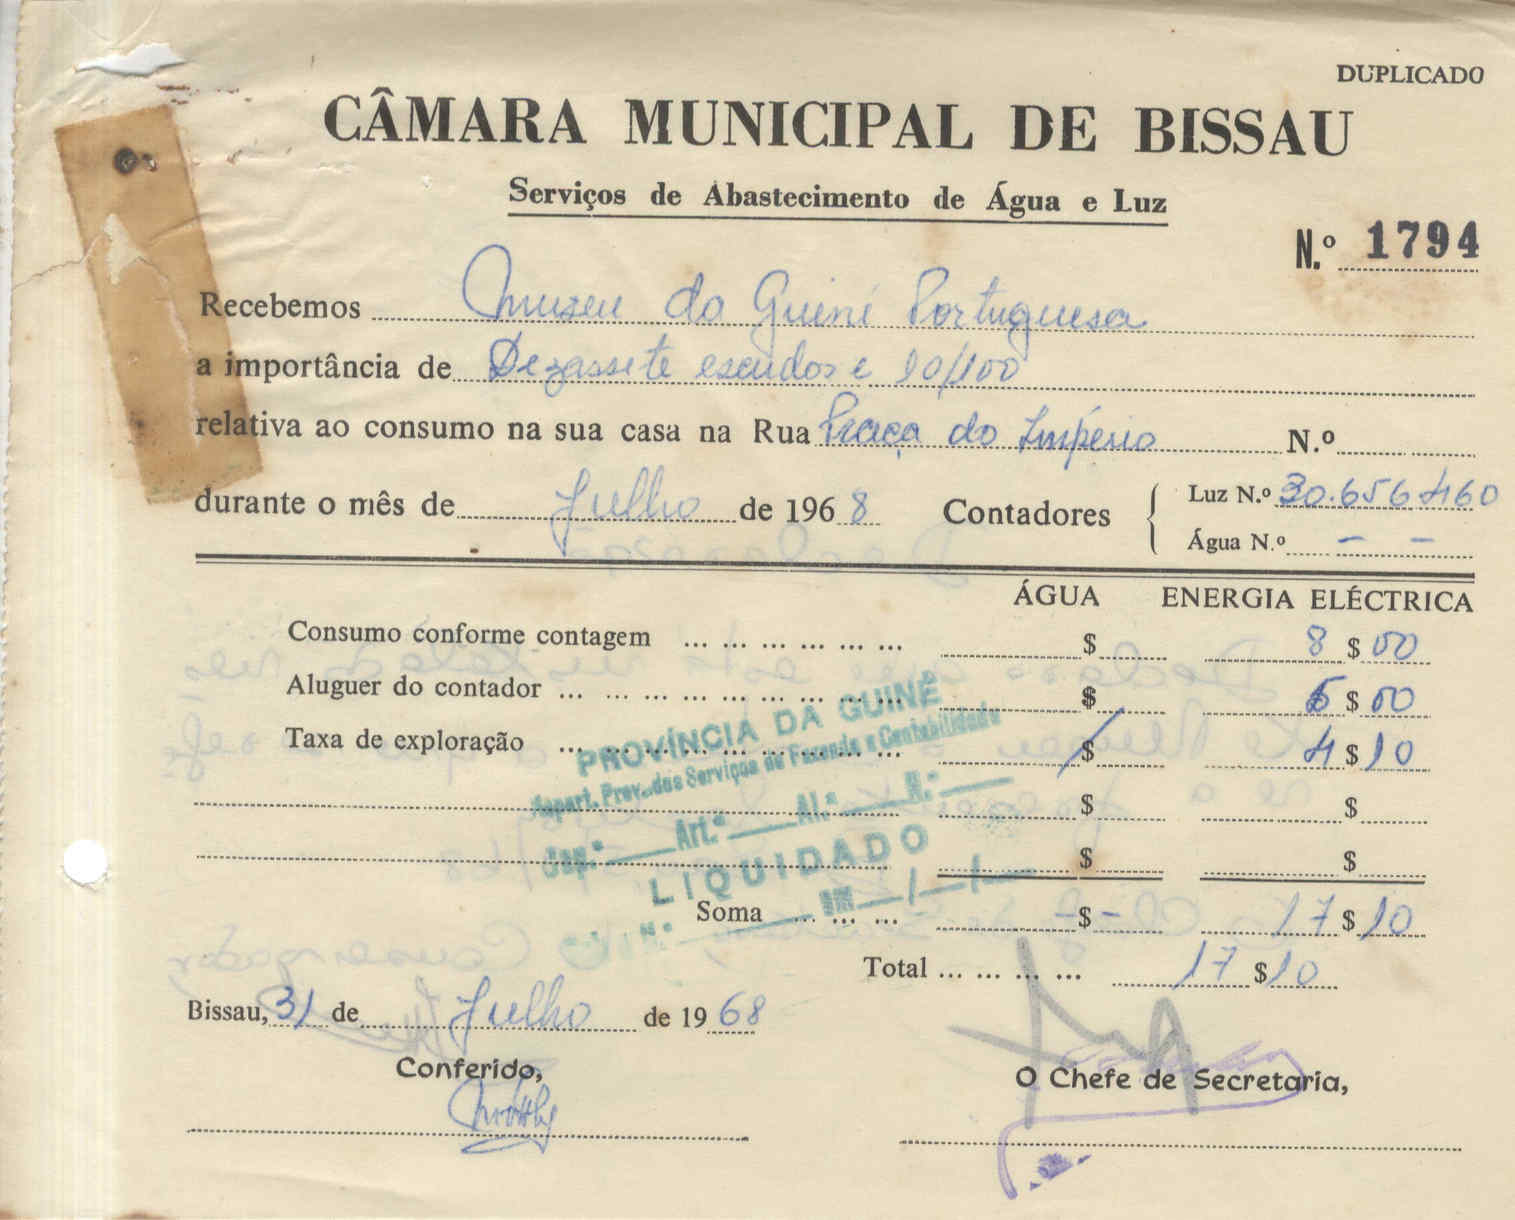 DUPLICADO
CÂMARA MUNICIPAL DE BISSAU
Serviços de Abastecimento de Água e Luz
N.º 1794
Recebemos Muzeu da Guiné Portuguesa
a importância de Dezassete escudos e 10/100
relativa ao consumo na sua casa na Rua Praça do Império N.º
durante o mês de Julho de 1968 Contadores
Luz N.º 30.656460
Água N.º - -
ÁGUA ENERGIA ELÉCTRICA
Consumo conforme contagem ... ... ... ... ... ... $ 8 $ 00
Aluguer do contador ... ... ... ... ... ... ... ... ... $ 5 $ 00
Taxa de exploração ... ... ... ... ... ... ... ... ... $ 4 $ 10
$ $
$ $
PROVÍNCIA DA GUINÉ
Repart. Prov. dos Serviços de Fazenda e Contabilidade
Cap.º Art.º Al.ª N.º
LIQUIDADO
N.º EM / /
Soma ... ... ... - $ - 17 $ 10
Total ... ... ... ... 17 $ 10
Bissau, 31 de Julho de 1968
Conferido,
O Chefe de Secretaria,